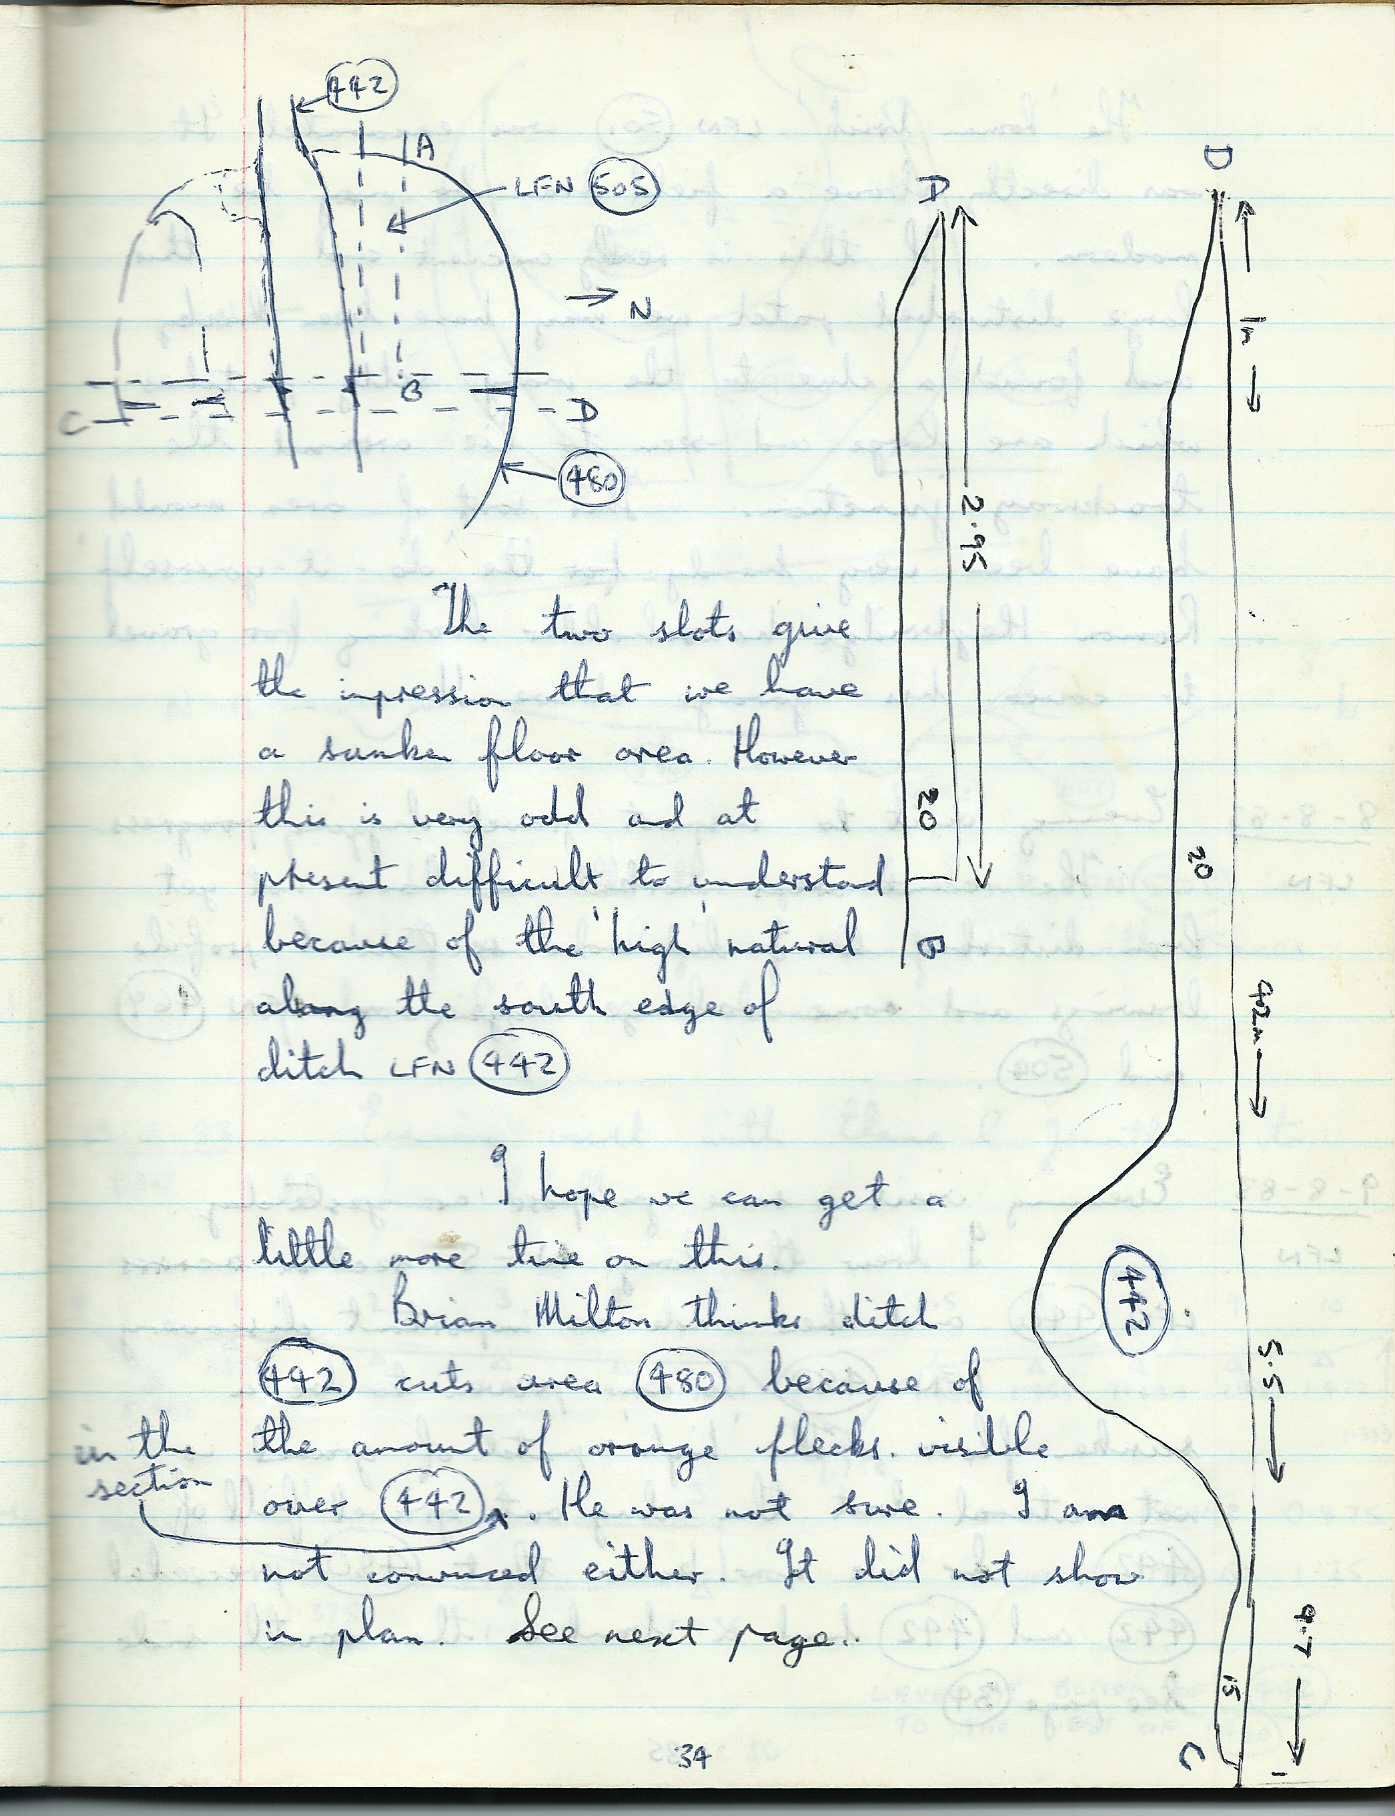 442
A
LFN 505
N
B
C
D
480
D
2.95
20
B
D
1m
20
4.02m
442
5.5
4.7
15
C
The two slots give
the impression that we have
a sunken floor area. However
this is very odd and at
present difficult to understand
because of the 'high' natural
along the south edge of
ditch LFN 442
I hope we can get a
little more time on this.
Brian Milton thinks ditch
442 cuts area 480 because of
the amount of orange flecks. visible
in the section
over 442. He was not sure. I am
not convinced either. It did not show
in plan. See next page.
34